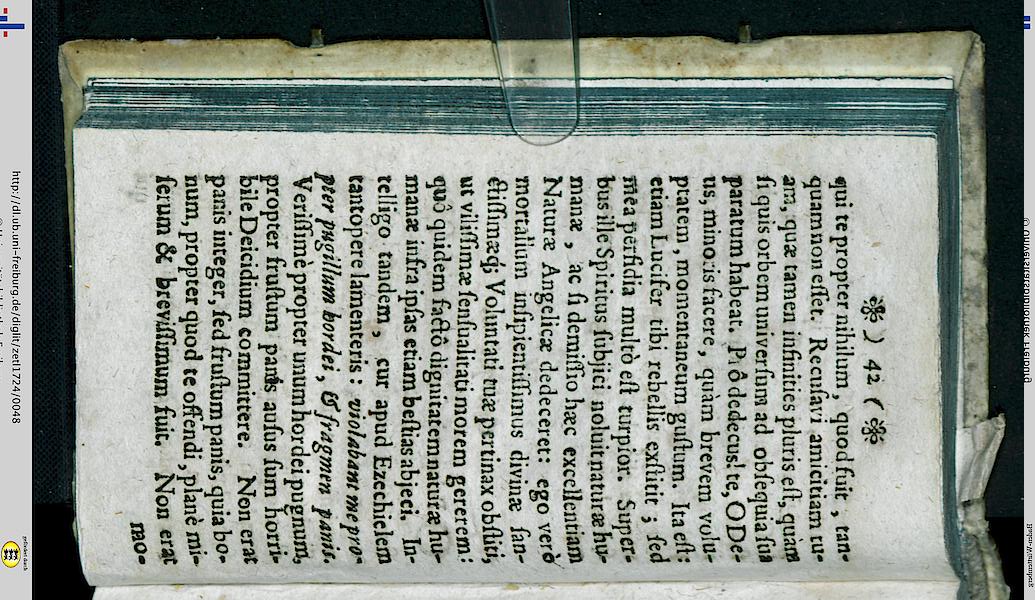 ❀ ) 42 ( ❀
qui te propter nihilum, quod fuit, tan-
quam non esset. Recusavi amicitiam tu-
am, quæ tamen infinities pluris est, quàm
si quis orbem universum ad obsequia sua
paratum habeat. Prô dedecus! te, O De-
us, minoris facere, quàm brevem volu-
ptatem, momentaneum gustum. Ita est:
etiam Lucifer tibi rebellis exstitit; sed
mea perfidia multò est turpior. Super-
bus ille Spiritus subjici noluit naturæ hu-
manæ, ac si demissio hæc excellentiam
Naturæ Angelicæ dedeceret: ego verò
mortalium insipientissimus divinæ san-
ctissimæq; Voluntati tuæ pertinax obstiti,
ut vilissimæ sensualitati morem gererem:
quô quidem factô dignitatem naturæ hu-
manæ infra ipsas etiam bestias abjeci. In-
telligo tandem, cur apud Ezechielem
tantopere lamenteris: violabant me pro-
pter pugillum hordei, & fragmen panis
Verissimè propter unum hordei pugnum,
propter frustum panis ausus sum horri-
bile Deicidium committere. Non erat
panis integer, sed frustum panis, quia bo-
num, propter quod te offendi, planè mi-
serum & brevissimum fuit. Non erat
mo-
http://dl.ub.uni-freiburg.de/diglit/zetl1724/0048
© Universitätsbibliothek Freiburg
gefördert durch